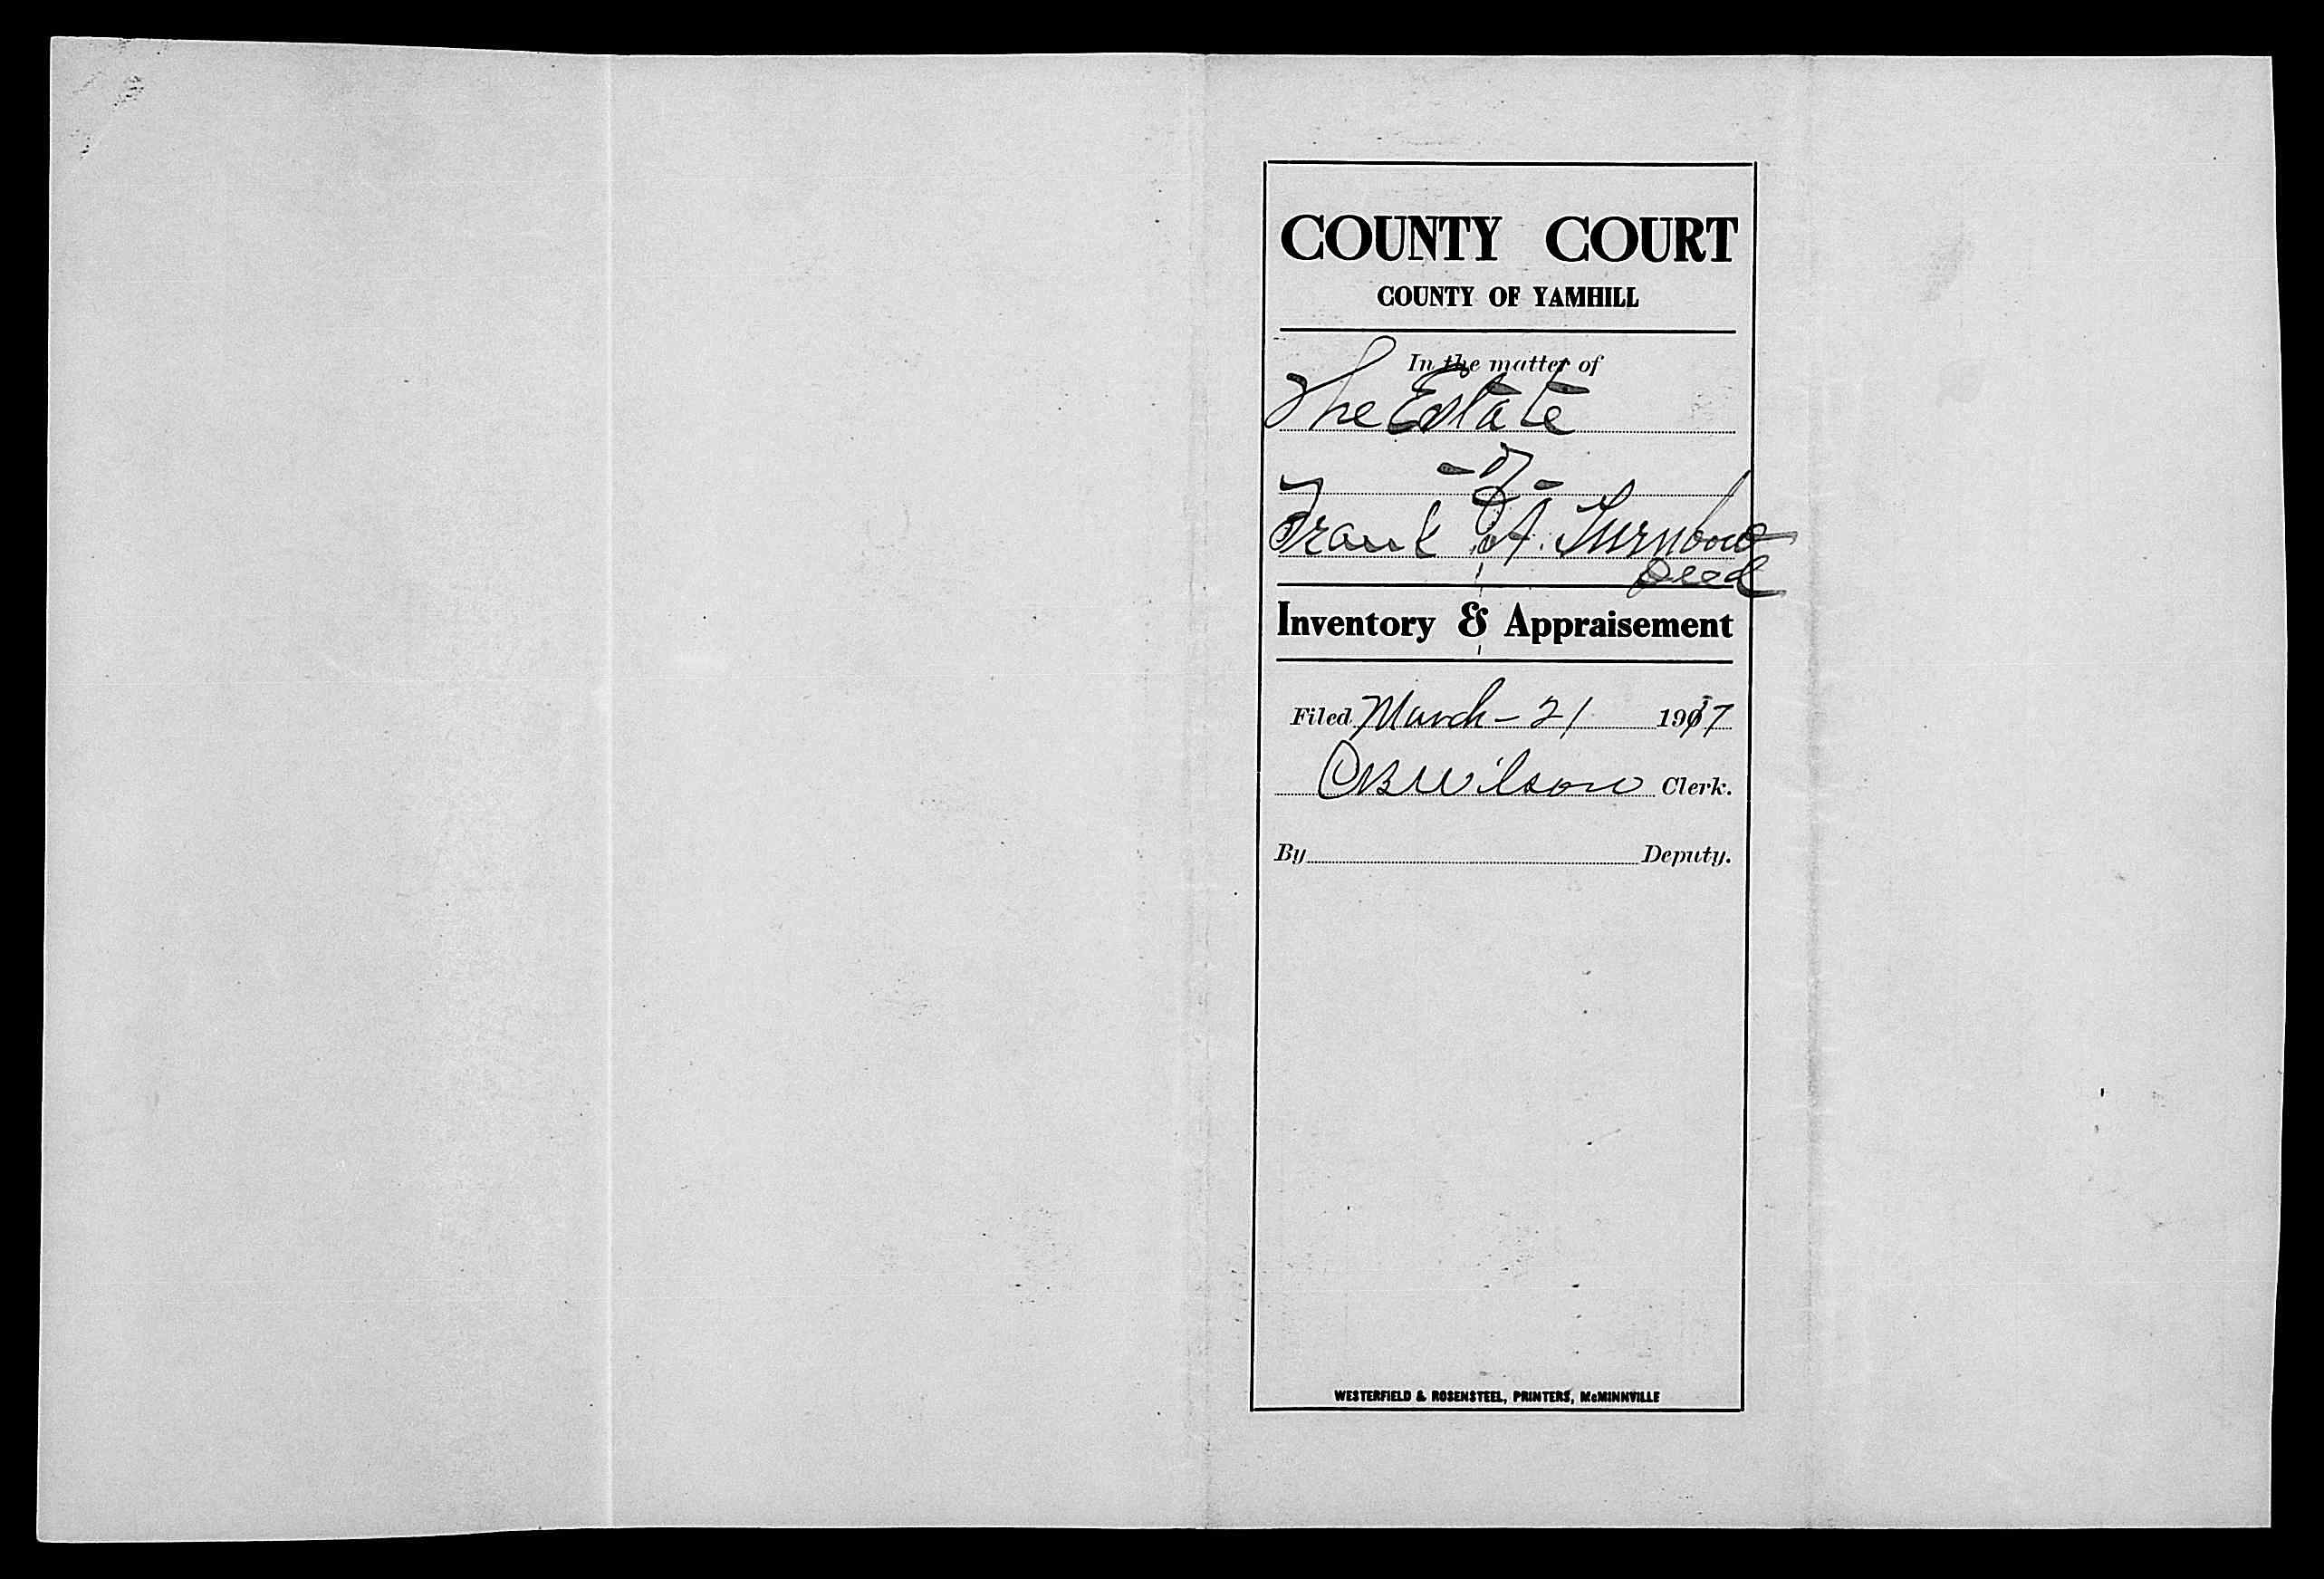 COUNTY COURT
COUNTY OF YAMHILL
In the matter of
The Estate
-of-
Frank A. Turnbow
Decd
Inventory & Appraisement
Filed March - 21 1917
CB Wilson Clerk.
By Deputy.
WESTERFIELD & ROSENSTEEL, PRINTERS, McMINNVILLE